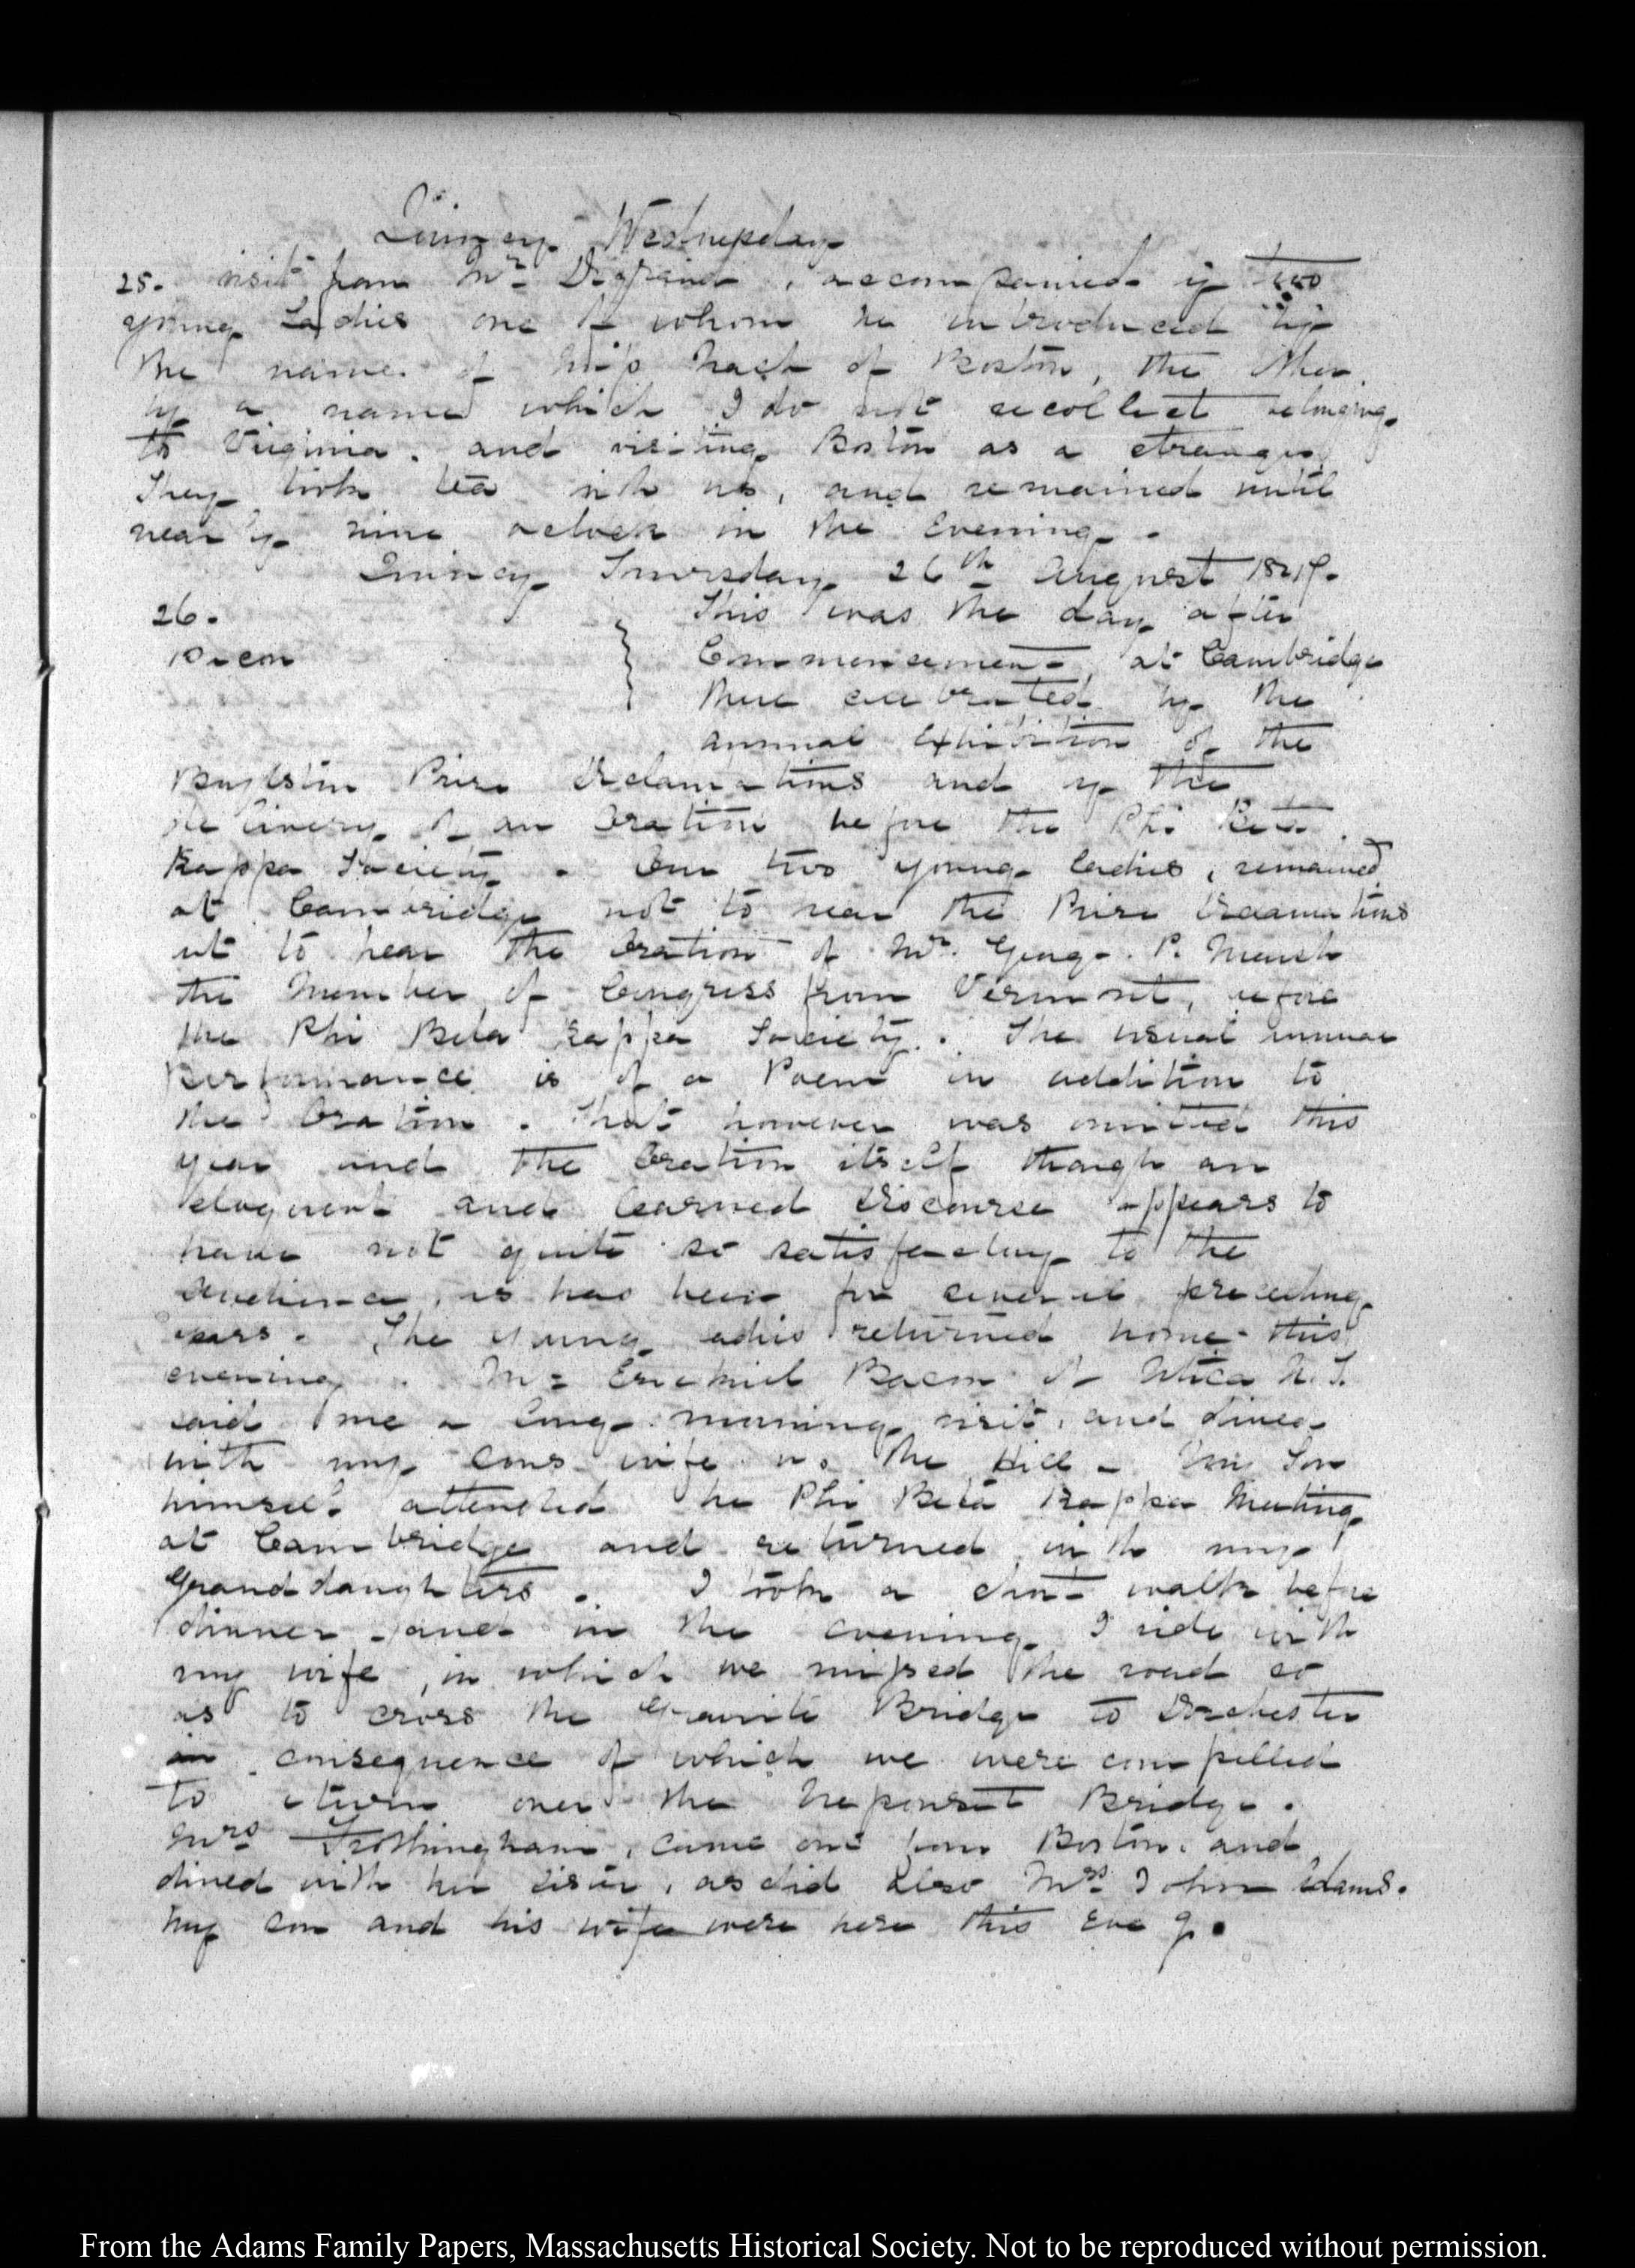 Quincy Wednesday
25. visit from Mr Degrand, accompanied by two
young Ladies one of whom he introduced by
the name of Miss of Boston, the other
by a name which I do not recollect belonging
to Virginia. and visiting Boston as a stranger
They took tea with us, and remained until
nearly nine o'clock in the Evening.
Quincy Thursday 26th August
26. This was the day after
Commencement at Cambridge
there celebrated by the
annual Exhibition of the
Boylston Prize Declamations and by the
delivery of an Oration before the Phi Beta
Kappa Society. Our two young ladies, remained
at Cambridge not to hear the Prize Declamations
but to hear the Oration of Mr. George. P. Marsh
the Member of Congress from Vermont, before
the Phi Beta Kappa Society. The usual annual
Performance is of a Poem in addition to
the Oration. That however was omitted this
year and the Oration itself though an
eloquent and learned Discourse appears to
have not quite so satisfactory to the
Audience, as has been for several preceding
years. The young ladies returned home this
evening. Mr Ezekiel Bacon of Utica N.Y.
paid me a long morning visit, and dined
with my Sons wife the Hill - My Son
himself attended the Phi Beta Kappa Meeting
at Cambridge and returned with my
Granddaughters. I took a short walk before
dinner and in the evening I ride with
my wife, in which we missed the road so
as to cross the Granite Bridge to Dorchester
in consequence of which we were compelled
to return over the Neponset Bridge.
Mrs Frothingham, came out from Boston. and
dined with her sister, as did also Mrs John Adams.
My Son and his wife were here this Eve g.
From the Adams Family Papers, Massachusetts Historical Society. Not to be reproduced without permission.